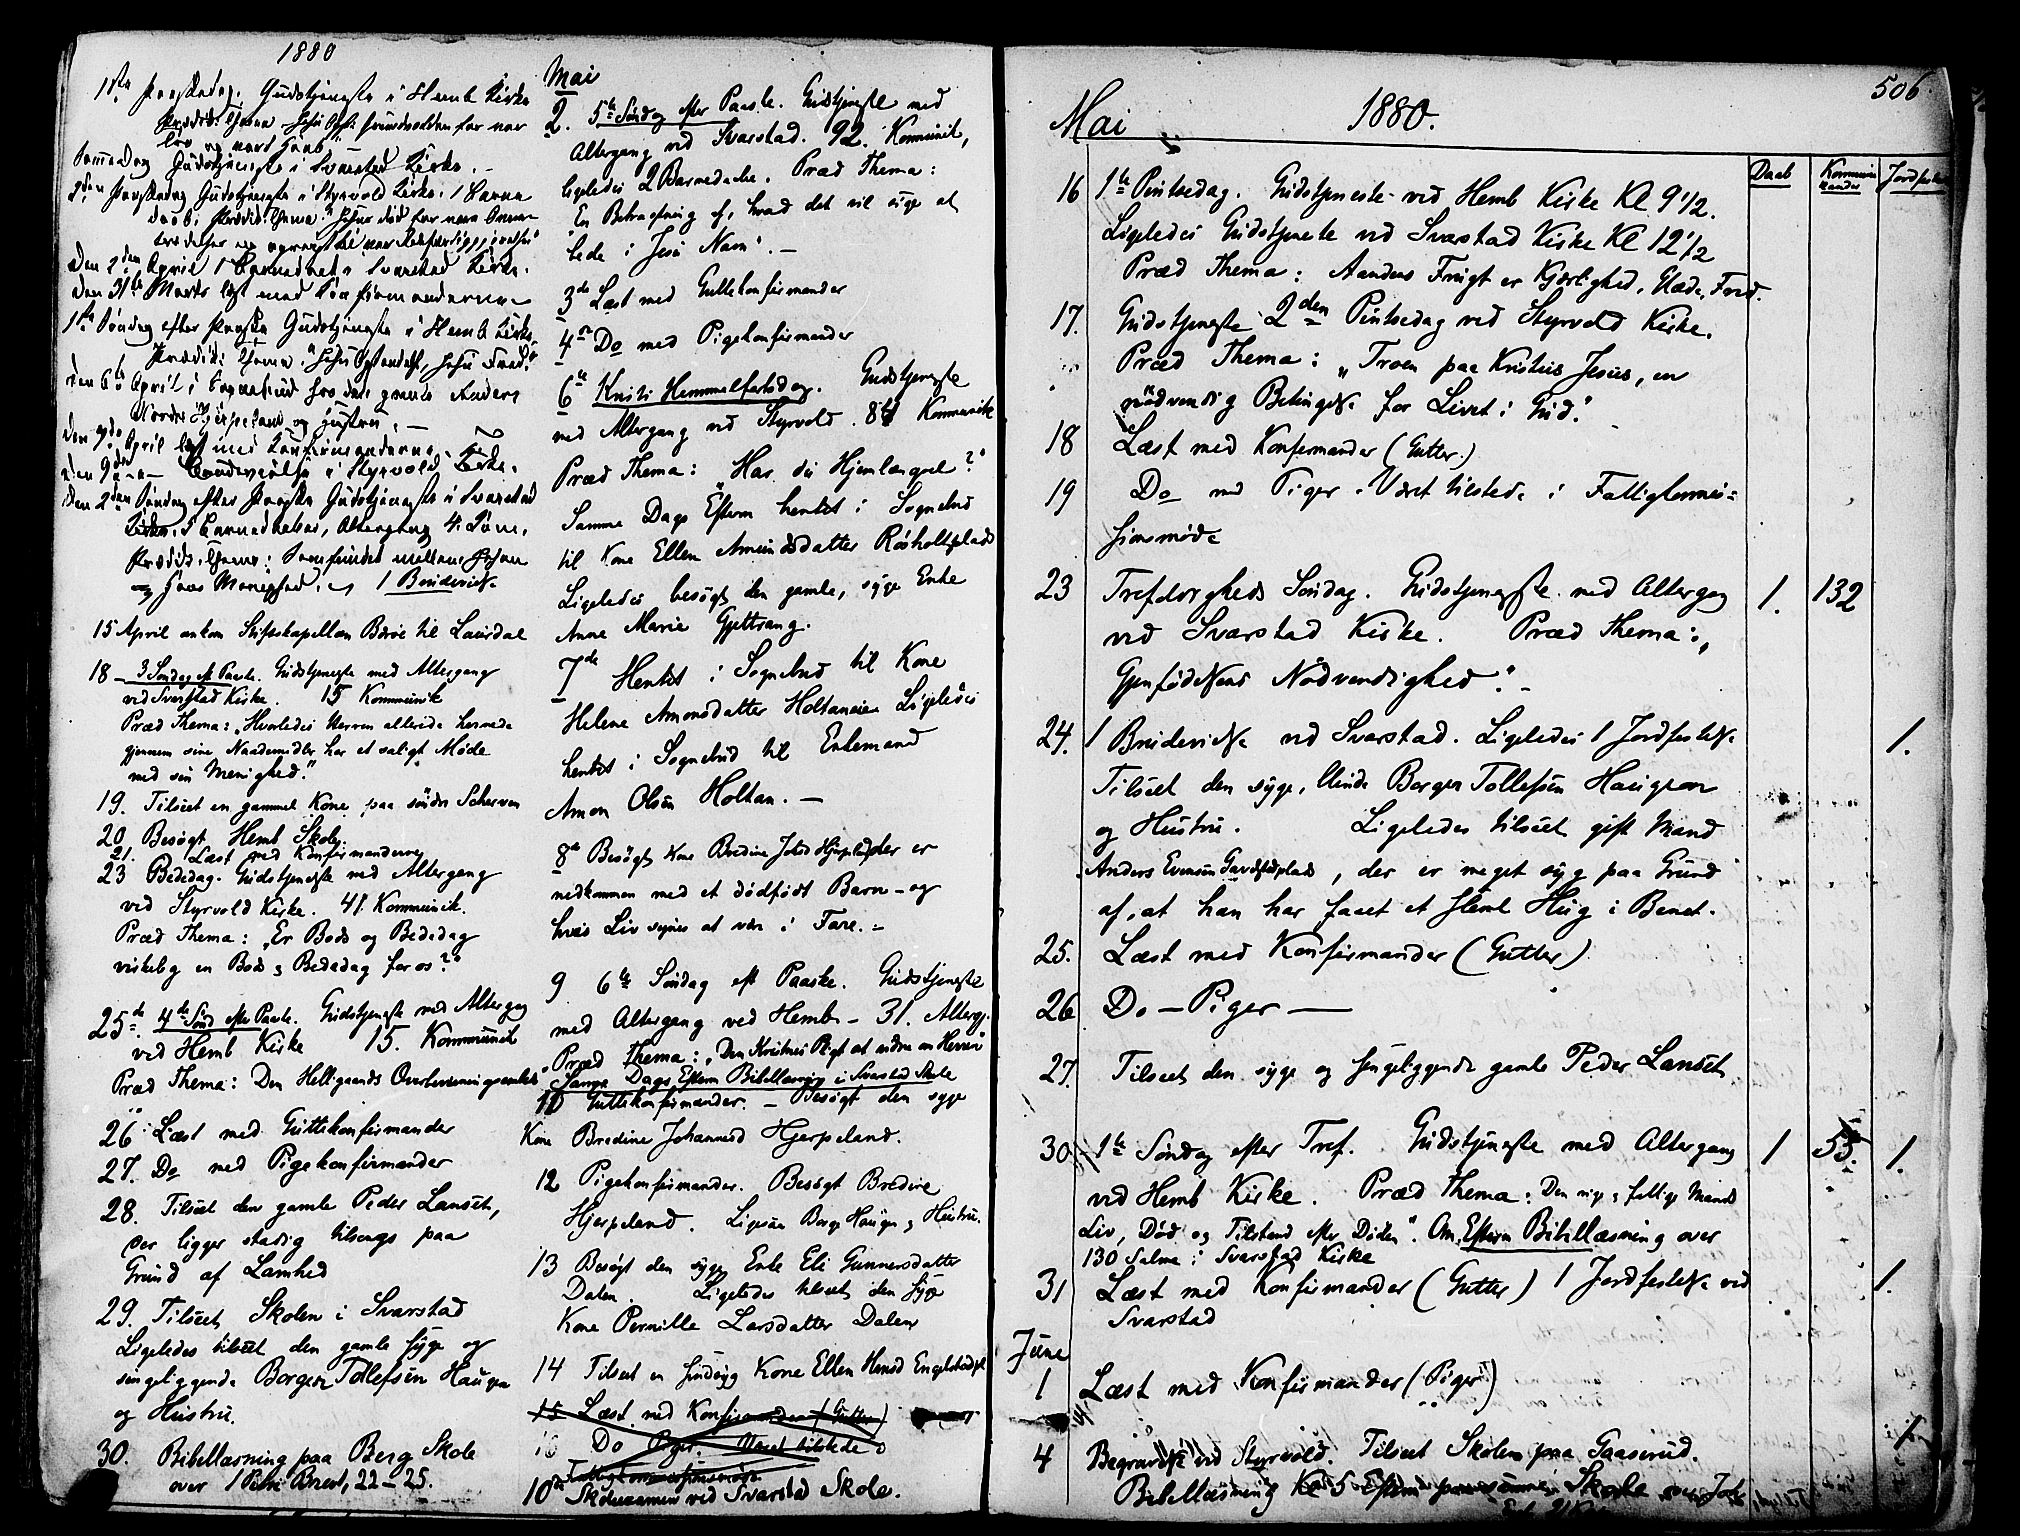 1880
1ste Paaskedag. Gudstjeneste i Hemb Kirke
Samme Dag Gudstjeneste i Svarstad Kirke.
2den Paaskedag Gudstjeneste i Styrvold Kirke. 1 Barne
daab.
Den 2den April 1 Barnedaab i Svarstad Kirke.
Den 31te Marts læst med Konfirmanderne
1ste Søndag efter Paaske Gudstjeneste i Hemb Kirke
den 6te April i Sognebud hos den gamle Anders
Nordre Hjerpeland og Hustru. –
den 7de April læst med Konfirmanderne.
den 9de – Brudevielse i Styrvold Kirke.
den 2den Søndag efter Paaske Gudstjeneste i Svarstad
Kirke. Barnedaaber, Altergang
og Hans Menighed. 1 Brudevielse
15 April ankom Stiftskapellan Børre til Laurdal
18 – 3 Søndag eft Paaske. Gudstjeneste med Altergang
ved Svarstad Kirke. 15 Kommunik
Præd Thema: „Hvorledes Herren allerede hernede
gjennem sine Naademidler har et saligt Møde
med sin Menighed."
19. Tilseet en gammel Kone paa søndre Scherven
20 Besøgt Hemb Skole.
21. Læst med Konfirmanderne
23 Bededag. Gudstjeneste med Altergang
ved Styrvold Kirke. 41 Kommunik.
Præd Thema: „Er Bods og Bededag
virkelig en Bods & Bededag for os?"
25de 4de Sønd efter Paaske. Gudstjeneste med Altergang
ved Hemb Kirke 15. Kommunik
Præd Thema: Den Helligaands Overbevisningsembede
26 Læst med Guttekonfirmander
27. Do med Pigekonfirmander
28. Tilseet den gamle Peder Lanset,
der ligger stadig tilsengs paa
Grund af Lamhed
29. Tilseet Skolen i Svarstad
Ligeledes tilseet den gamle syge og
sengeliggende Borger Tollefsen Haugen
og Hustru.
30. Bibellæsning paa Berg Skole
over 1 Petri Brev 1, 22–25.
Mai
2. 5te Søndag efter Paaske. Gudstjeneste med
Altergang ved Svarstad. 92. Kommunik,
ligeledes 2 Barnedaabe. Præd Thema:
En Betragtning af, hvad det vil sige at
bede i Jesu Navn". –
3de Læst med Guttekonfirmander
4de Do med Pigekonfirmander
6te Kristi Himmelfartsdag. Gudstjeneste
med Altergang ved Styrvold. Kommunik
Præd Thema: „Har du Hjemlængsel?"
Samme Dags Efterm hentet i Sognebud
til Kone Ellen Amundsdatter Rösholtplads
Ligeledes besøgt den gamle, syge Enke
Anne Marie Gjettrang.
7de Hentet i Sognebud til Kone
Helene Amonsdatter Holtaneie Ligeledes
hentet i Sognebud til Enkemand
Amon Olsen Holtan. –
8de Besøgt Kone Bredine Johsd Hjerpeland der er
nedkommen med et dødfødt Barn – og
hvis Liv synes at være i Fare. –
9 6te Søndag eft Paaske. Gudstjeneste
med Altergang ved Hemb – 31. Alterg.
Præd Thema: „Den Kristnes Pligt at vidne om Herren
Samme Dags Efterm Bibellæsning i Svarstad Skole
10 Guttekonfirmander. – Besøgt den syge
Kone Bredine Johannesd Hjerpeland.
12 Pigekonfirmander. Besøgt Bredine
Hjerpeland. Ligesaa Borge Haugen & Hustru.
13 Besøgt den syge Enke Eli Gunnersdatter
Dalen. Ligeledes tilseet den syge
Kone Pernille Larsdatter Dalen
14 Tilseet en sindssyg Kone Ellen Hansd Engelstadpl
15 Læst med Konfirmander (Gutter)
16 Do Piger. Været tilstede i
Fattigkommissionsmøde
10de Skoleexamen ved Svarstad Skole.
506
Mai 1880.
Daab Kommunikander Jordfæstelse
16 1ste Pintsedag. Gudstjeneste ved Hemb Kirke Kl 9 1/2.
Ligeledes Gudstjeneste ved Svarstad Kirke Kl 12 1/2
Præd Thema: Aandens Frugt er Kjærlighed, Glæde, Fred.
17. Gudstjeneste 2den Pintsedag ved Styrvold Kirke.
Præd Thema: „Troen paa Kristus Jesus, en
nødvendig Betingelse for Livet i Gud."
18 Læst med Konfirmander (Gutter.)
19 Do med Piger. Været tilstede i Fattigkommis=
sionsmøde
23 Trefoldigheds Søndag. Gudstjeneste med Altergang 1. 132
ved Svarstad Kirke. Præd Thema: „
Gjenfødelsens Nødvendighed". –
24. 1 Brudevielse ved Svarstad. Ligeledes 1 Jordfæstelse 1.
Tilseet den syge, blinde Borger Tollefsen Haugen
og Hustru. Ligeledes tilseet gift Mand
Anders Evensen , der er meget syg paa Grund
af, at han har faaet et slemt Hug i Benet.
25. Læst med Konfirmander (Gutter)
26 Do – Piger –
27. Tilseet den syge og sengeliggende gamle Peder Lanset
30 1ste Søndag efter Tref. Gudstjeneste med Altergang 1 53. 1.
ved Hemb Kirke. Præd Thema: Den rige & fattige Mands
Liv, Død og Tilstand efter Døden". Om Efterm Bibellæsning over
130 Salme i Svarstad Kirke
31 Læst med Konfirmander (Gutter) 1 Jordfæstelse ved 1.
Svarstad
June
1 Læst med Konfirmander (Piger)
4 Begravelse ved Styrvold. Tilseet Skolen paa Gaaserud. 1
Bibellæsning Kl 5 Efterm paa samme Skole over Joh